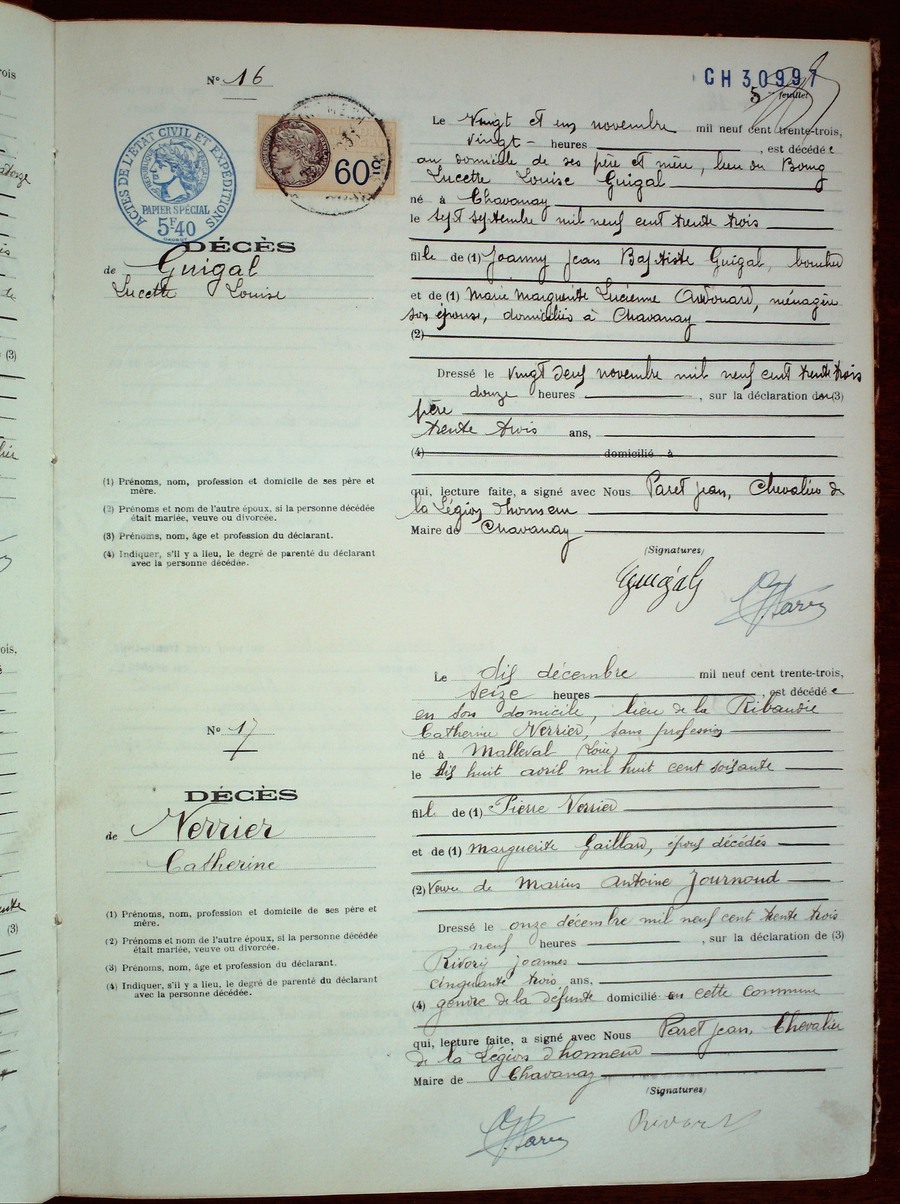 N° 16
CH 30997
5 feuillet
ACTES DE L'ÉTAT CIVIL ET EXPÉDITIONS
PAPIER SPÉCIAL
5F40
60c
DÉCÈS
de Guigal
Lucette Louise
Le Vingt et un novembre mil neuf cent trente-trois,
vingt - heures , est décédée
au domicile de ses père et mère, lieu du Bourg
Lucette Louise Guigal
né à Chavanay
le sept septembre mil neuf cent trente trois
fille de (1) Joanny Jean Baptiste Guigal, boucher
et de (1) Marie Marguerite Lucienne Audouard, ménagère
son épouse, domiciliés à Chavanay
(2)
Dressé le vingt deux novembre mil neuf cent trente trois
douze heures , sur la déclaration du (3)
père
trente trois ans,
(4) domicilié à
qui, lecture faite, a signé avec Nous Paret Jean, Chevalier de
la Légion d'honneur
Maire de Chavanay
(Signatures)
Guigal
(1) Prénoms, nom, profession et domicile de ses père et
mère.
(2) Prénoms et nom de l'autre époux, si la personne décédée
était mariée, veuve ou divorcée.
(3) Prénoms, nom, âge et profession du déclarant.
(4) Indiquer, s'il y a lieu, le degré de parenté du déclarant
avec la personne décédée.
N° 17
DÉCÈS
de Verrier
Catherine
(1) Prénoms, nom, profession et domicile de ses père et
mère.
(2) Prénoms et nom de l'autre époux, si la personne décédée
était mariée, veuve ou divorcée.
(3) Prénoms, nom, âge et profession du déclarant.
(4) Indiquer, s'il y a lieu, le degré de parenté du déclarant
avec la personne décédée.
Le dix décembre mil neuf cent trente-trois,
seize heures , est décédée
en son domicile, lieu de la Ribaudie
Catherine Verrier, sans profession
né à Malleval (Loire)
le dix huit avril mil huit cent soixante
fille de (1) Pierre Verrier
et de (1) Marguerite Gaillard, époux décédés
(2) Veuve de Marius Antoine Journoud
Dressé le onze décembre mil neuf cent trente trois
neuf heures , sur la déclaration de (3)
Rivory Joannes
cinquante trois ans,
(4) gendre de la défunte domicilié en cette commune
qui, lecture faite, a signé avec Nous Paret Jean, Chevalier
de la Légion d'honneur
Maire de Chavanay
(Signatures)
Rivory